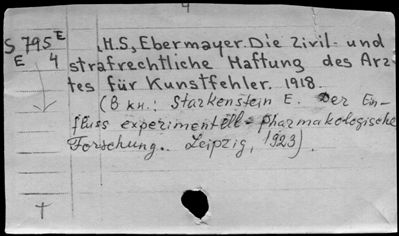 4
S 795 E
E 4
H.S, Ebermayer. Die zivil- und
strafrechtliche Haftung des Arz-
tes für Kunstfehler. 1918
(В кн.: Starkenstein E. Der Ein-
fluss experimentell-pharmakologische
Forschung.. Leipzig, 1923).